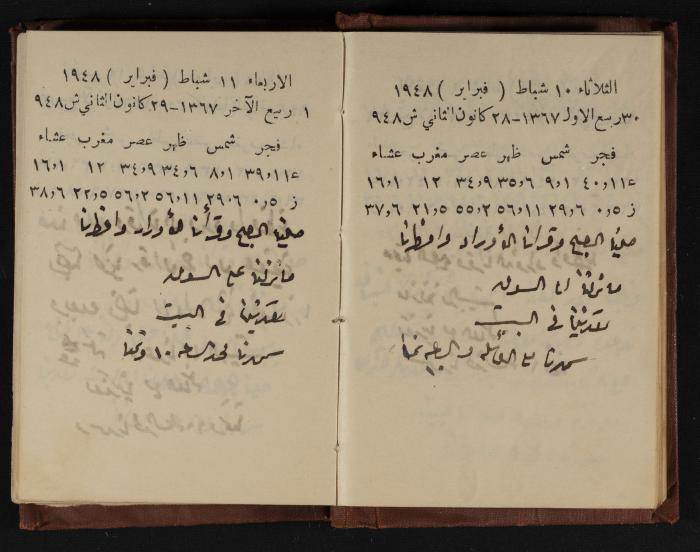 الثلاثاء ١٠ شباط ( فبراير ) ١٩٤٨
٣٠ ربيع الاول ١٣٦٧-٢٨ كانون الثاني ش ٩٤٨
فجر شمس ظهر عصر مغرب عشاء
ع ١١و٤٠ ١و٩ ٦و٣٥ ٩و٣٤ ١٢ ١و١٦
ز ٥و٠ ٦و٢٩ ١١و٥٦ ٢و٥٥ ٥و٢١ ٦و٣٧
صلينا الصبح وقرأنا الأوراد وافطرنا
ما نزلنا الى السوق
تغدينا في البيت
سهرنا مع العائلة
الاربعاء ١١ شباط ( فبراير ) ١٩٤٨
١ ربيع الآخر ١٣٦٧-٢٩ كانون الثاني ش ٩٤٨
فجر شمس ظهر عصر مغرب عشاء
ع ١١و٣٩ ١و٨ ٦و٣٤ ٩و٣٤ ١٢ ١و١٦
ز ٥و٠ ٦و٢٩ ١١و٥٦ ٢و٥٦ ٥و٢٢ ٦و٣٨
صلينا الصبح وقرأنا الأوراد وافطرنا
ما نزلنا على السوق
تغدينا في البيت
سهرنا لحد الساعة ١٠ ونمنا